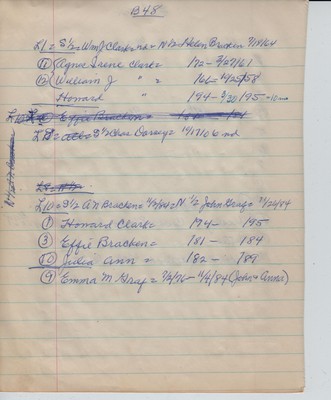 B48
L1 = S½ Wm J Clark = md = N½ = Helen Bracken 7/19/64
⑪ Agnes Irene Clark = 192 - 3/27/61
⑫ William J " = 166 - 4/25/58
Howard " = 194 - 3/20/95 = 10 mo
Effie Bracken =
S½ Chas Dorsey = 10/17/06 md
L10 = S½ A N Bracken = N½ John Gray =
① Howard Clark = 194 - 195
③ Effie Bracken = 181 - 184
⑩ Julia Ann = 182 - 189
⑨ Emma M Gray = 7/2/76 - 4/4/84 (John & Anna)